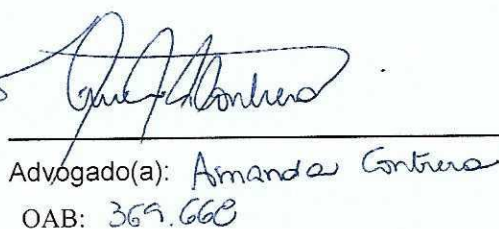 Advogado(a): Amanda Contrera
OAB: 369.668